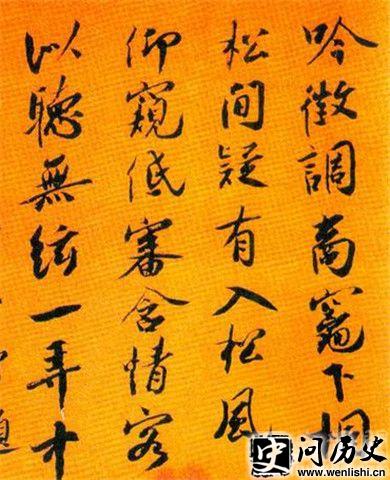 吟徵調商竈下桐
松間疑有入松風
仰窺低審含情客
以聽無絃一弄中
史
问历史
www.wenlishi.cn